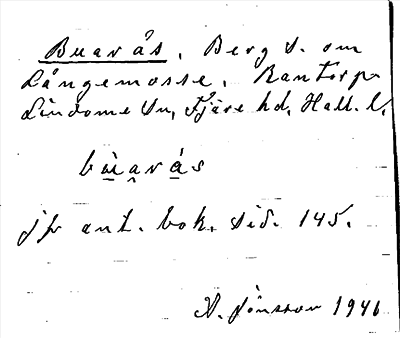 Buarås, Berg S. om
Långemosse, Rantorp
Lindome Sn, Fjäre hd, Hall. l.
bùarás
jfr ant. bok. sid. 145.
Jönsson 1946